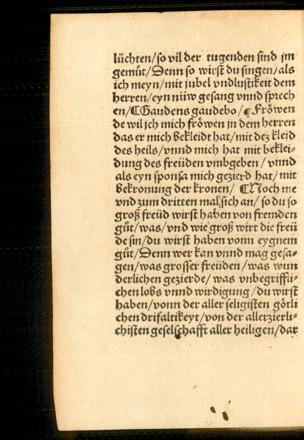 lüchten/so vil der tugenden sind jm
gemüt/Denn so wirst du singen/als
ich meyn/mit jubel vnd lustikeit dem
herren/eyn nüw gesang vnnd sprech
en/⸿Gaudens gaudebo/¶Fröwen
de wil jch mich fröwen in dem herren
das er mich bekleidt hat/mit dez kleid
des heils/vnnd mich hat mit beklei-
dung des freüden vmbgeben/vnnd
als eyn sponsa mich gezierd hat/mit
bekronung der kronen/⸿Noch me
vnd zum dritten mal sich an/so du so
groß freüd wirst haben von fremden
güt/was/vnd wie groß wirt die freü
de sin/du wirst haben vonn eygnem
güt/Denn wer kan vnnd mag gesa-
gen/was grosser freüden/was wun
derlichen gezierde/was vnbegriffli-
chen lobs vnnd wirdigung/du wirst
haben/vonn der aller seligisten görli
chen drifaltikeyt/von der allerzierli-
chisten geselschafft aller heiligen/dar